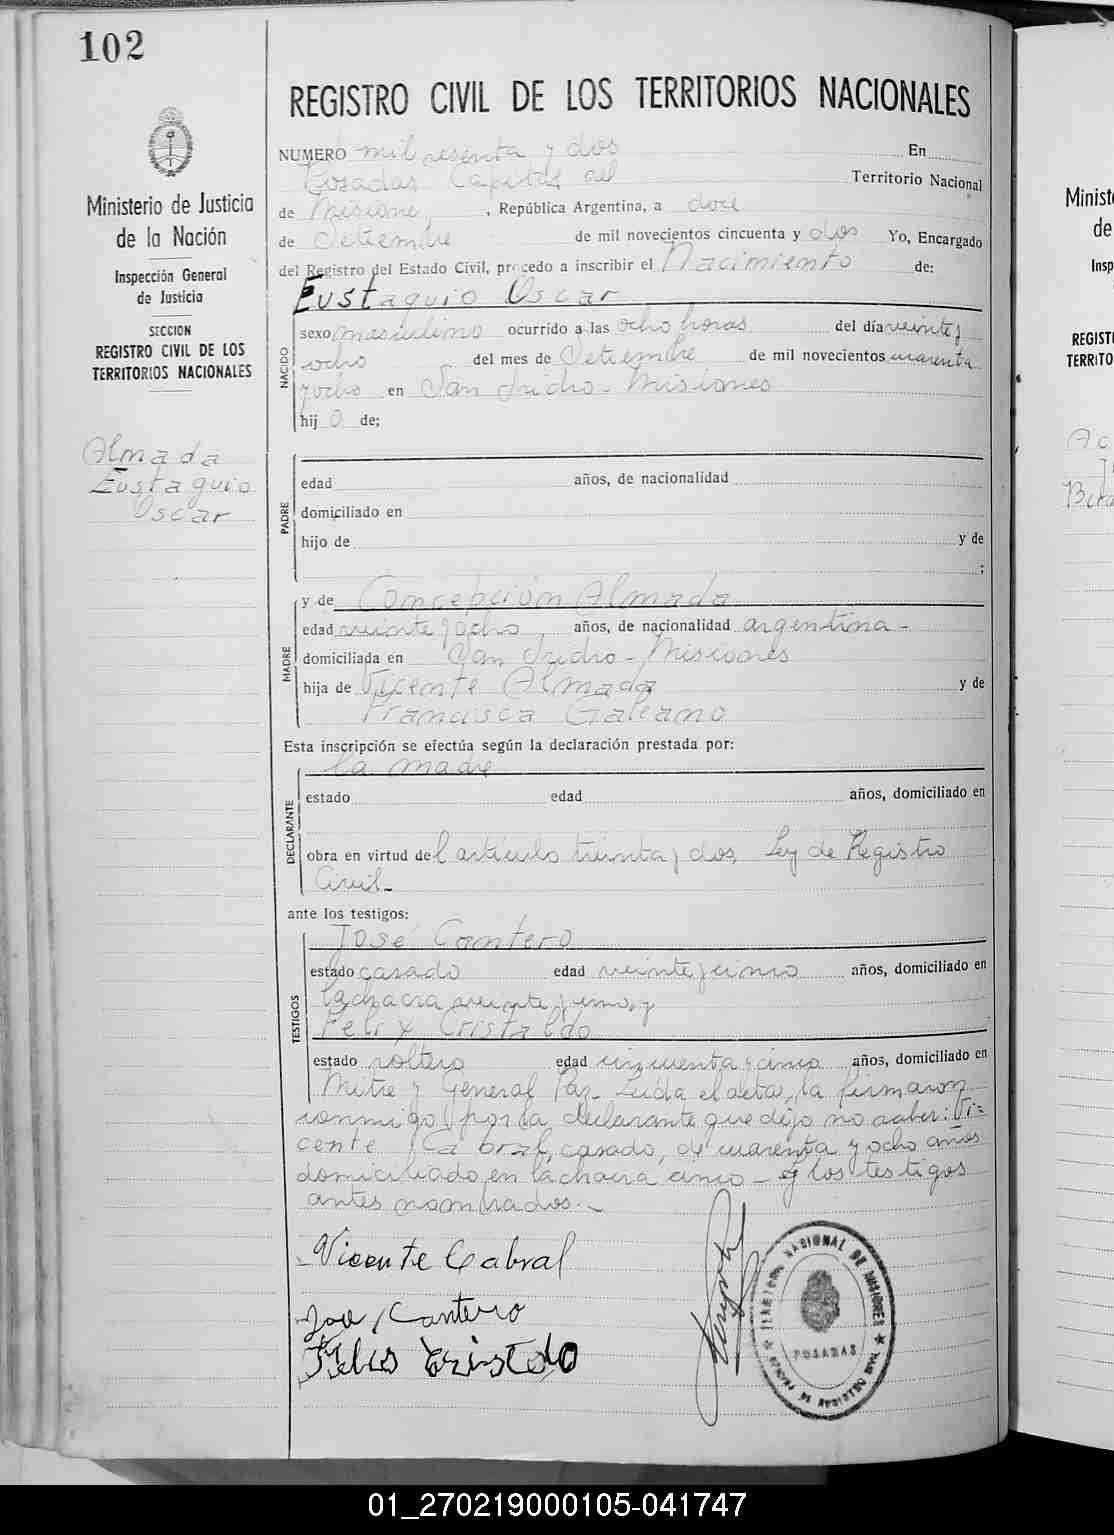 102
Ministerio de Justicia
de la Nación
Inspección General
de Justicia
SECCION
REGISTRO CIVIL DE LOS
TERRITORIOS NACIONALES
Almada
Eustaquio
Oscar
REGISTRO CIVIL DE LOS TERRITORIOS NACIONALES
NUMERO mil sesenta y dos En
Posadas Capital del Territorio Nacional
de Misiones, República Argentina, a doce
de Setiembre de mil novecientos cincuenta y dos Yo, Encargado
del Registro del Estado Civil, procedo a inscribir el Nacimiento de:
Eustaquio Oscar
NACIDO
sexo masculino ocurrido a las ocho horas del día veinte y
ocho del mes de Setiembre de mil novecientos cuarenta
y ocho en San Isidro - Misiones
hijo de;
PADRE
edad años, de nacionalidad
domiciliado en
hijo de y de
;
MADRE
y de Concepción Almada
edad veinte y ocho años, de nacionalidad argentina -
domiciliada en San Isidro - Misiones
hija de Vicente Almada y de
Francisca Galeano
Esta inscripción se efectúa según la declaración prestada por:
la madre
DECLARANTE
estado edad años, domiciliado en
obra en virtud del artículo treinta y dos Ley de Registro
Civil -
ante los testigos:
TESTIGOS
José Cantero
estado casado edad veinte y cinco años, domiciliado en
la chacra veinte y uno, y
Felix Cristaldo
estado soltero edad cincuenta y cinco años, domiciliado en
Mitre y General Paz - Leida el acta, la firmaron
conmigo, por la declarante que dijo no saber: Vi=
cente Cabral, casado, de cuarenta y ocho años
domiciliado en la chacra cinco - y los testigos
antes nombrados. -
Vicente Cabral
José Cantero
POSADAS
Minist
de
Insp
REGIST
TERRITO
01_270219000105-041747